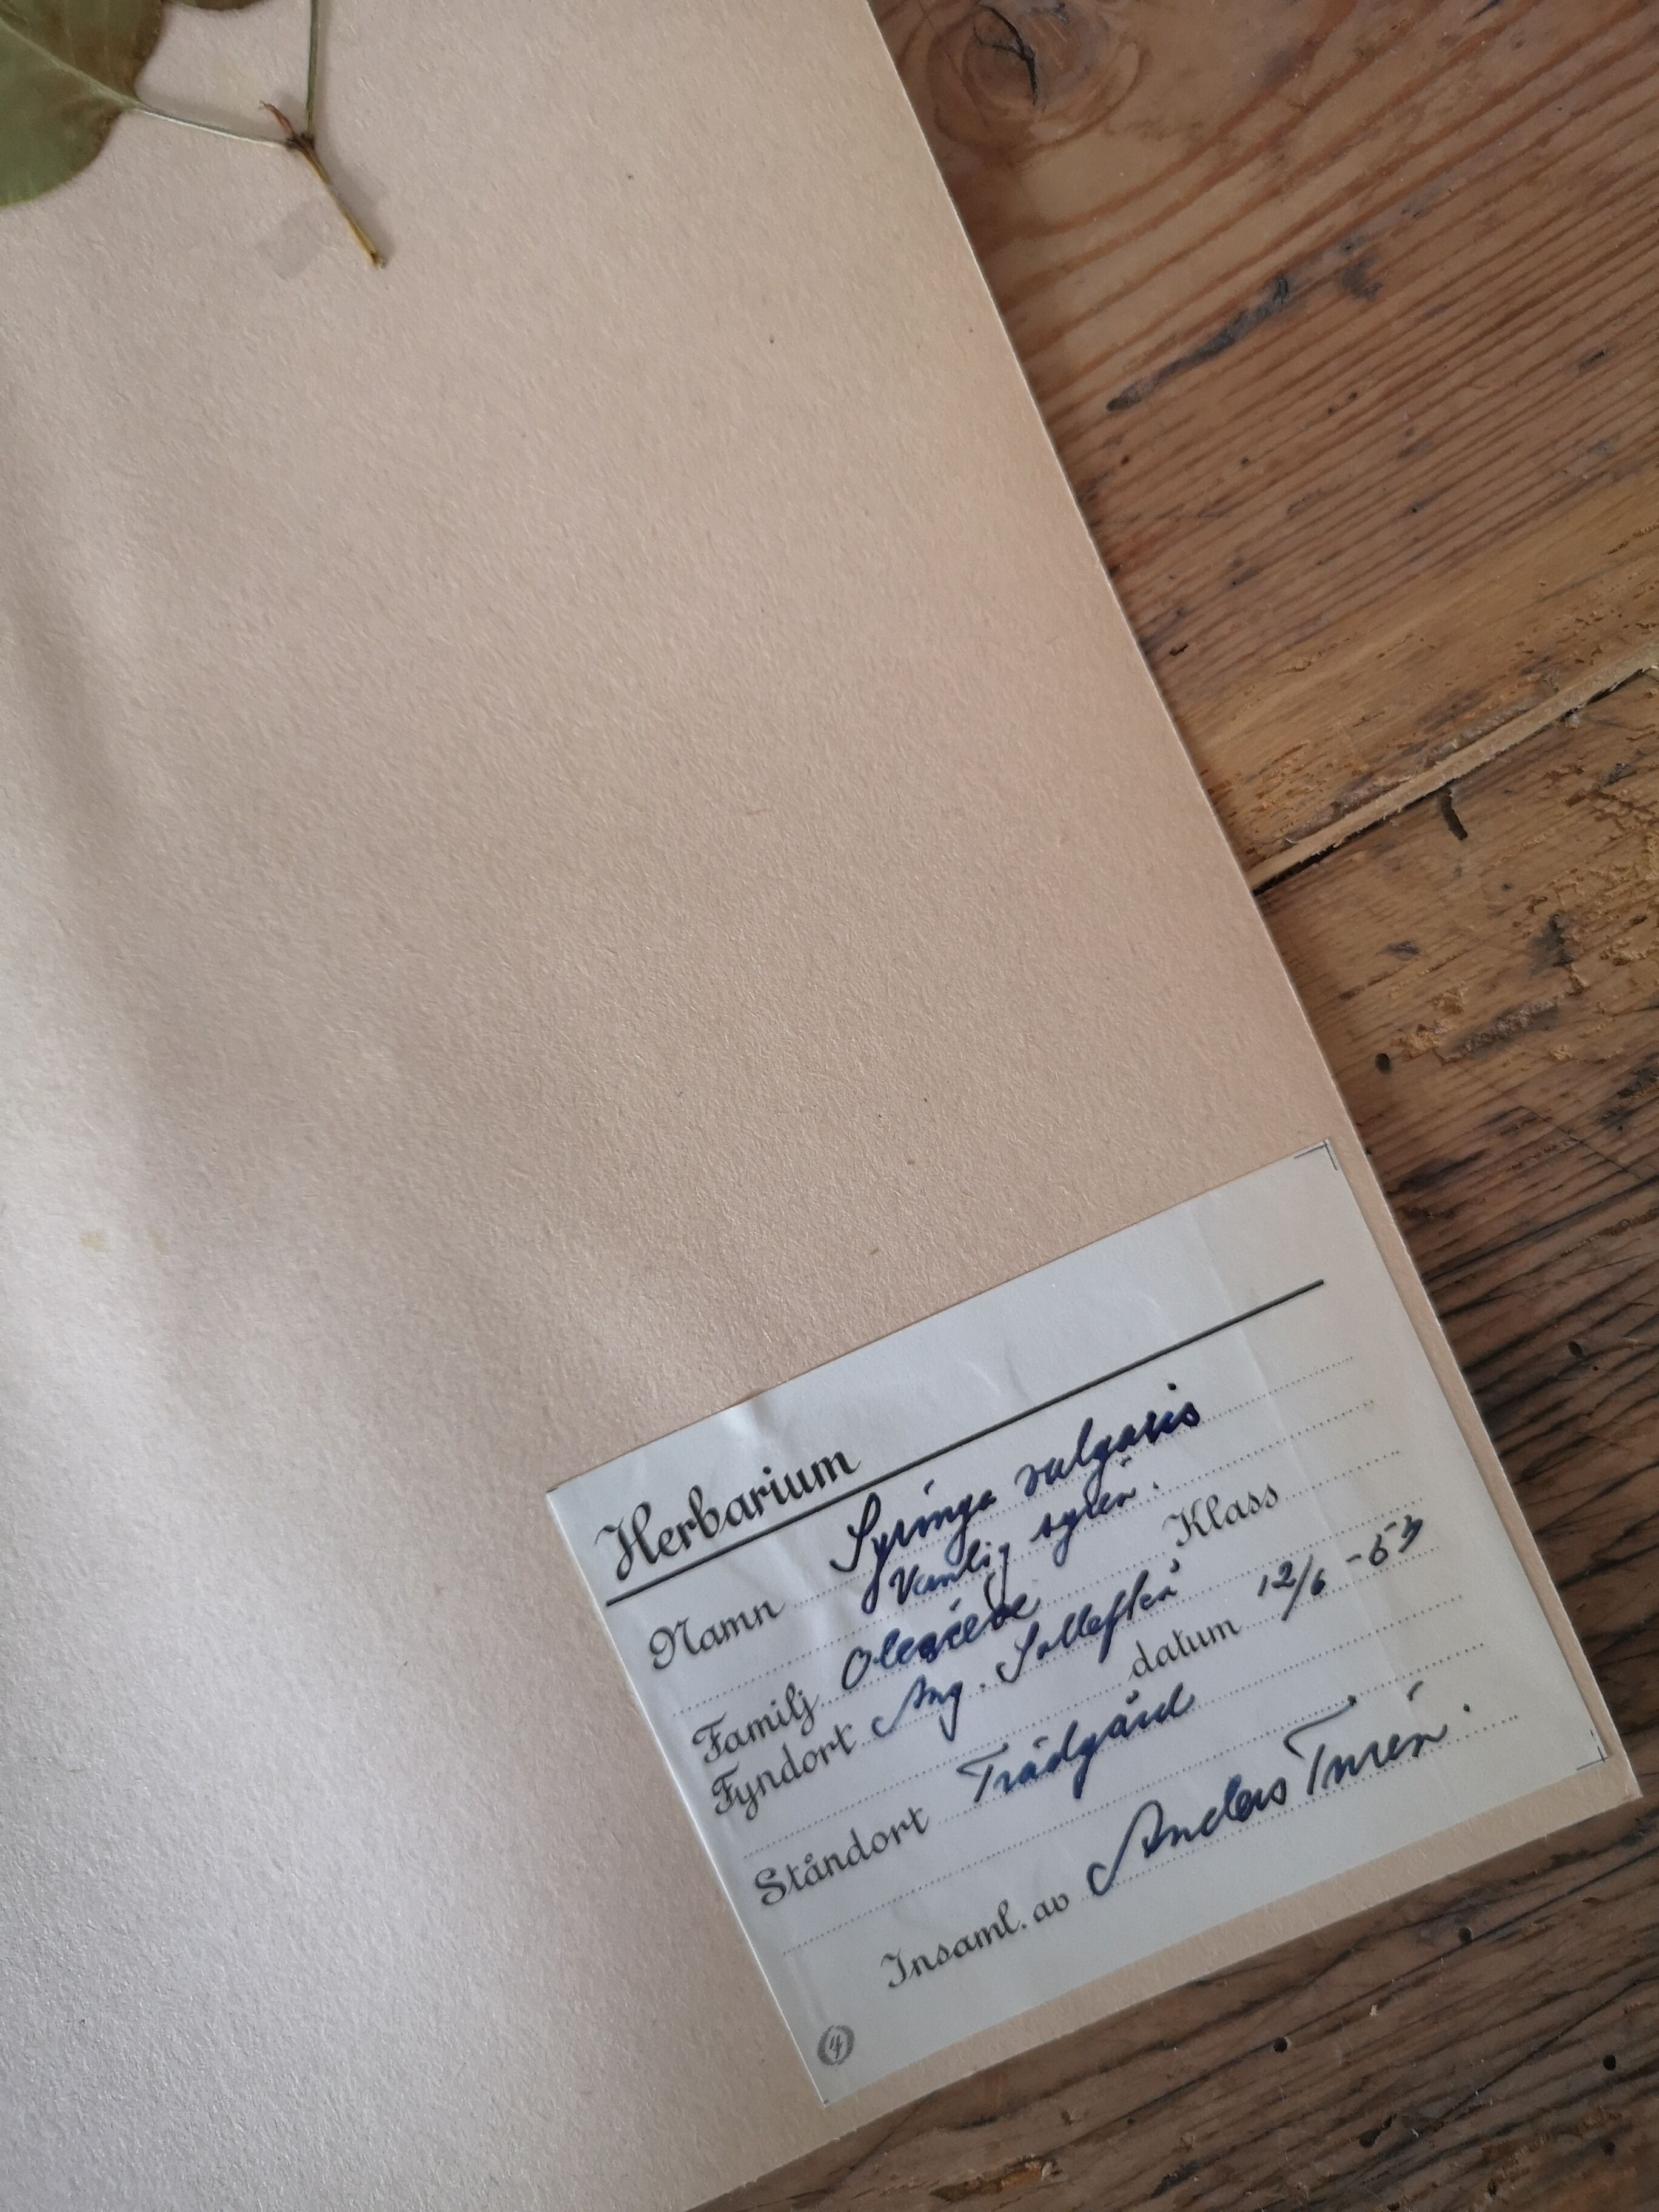 Herbarium
Namn Syringa vulgaris
Vanlig syrén.
Familj Oleaceae Klass
Fyndort Ång. Sollefteå
datum 12/6 -53
Ståndort Trädgård
Insaml. av Anders Turén.
4